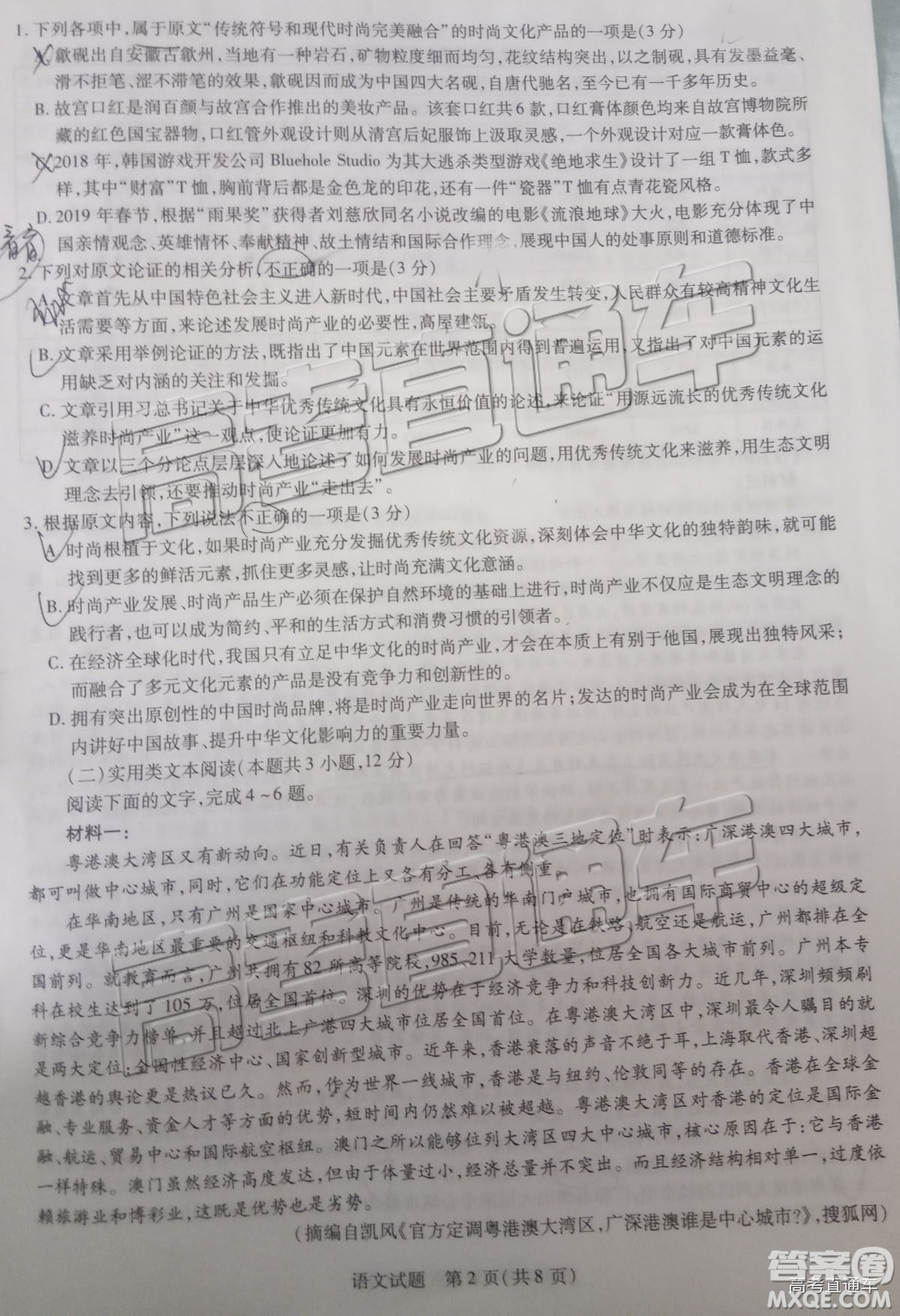 1. 下列各项中,属于原文“传统符号和现代时尚完美融合”的时尚文化产品的一项是(3 分)
A. 歙砚出自安徽古歙州,当地有一种岩石,矿物粒度细而均匀,花纹结构突出,以之制砚,具有发墨益毫、
滑不拒笔、涩不滞笔的效果,歙砚因而成为中国四大名砚,自唐代驰名,至今已有一千多年历史。
B. 故宫口红是润百颜与故宫合作推出的美妆产品。该套口红共 6 款,口红膏体颜色均来自故宫博物院所
藏的红色国宝器物,口红管外观设计则从清宫后妃服饰上汲取灵感,一个外观设计对应一款膏体色。
C. 2018 年,韩国游戏开发公司 Bluehole Studio 为其大逃杀类型游戏《绝地求生》设计了一组 T 恤,款式多
样,其中“财富”T 恤,胸前背后都是金色龙的印花,还有一件“瓷器”T 恤有点青花瓷风格。
D. 2019 年春节,根据“雨果奖”获得者刘慈欣同名小说改编的电影《流浪地球》大火,电影充分体现了中
国亲情观念、英雄情怀、奉献精神、故土情结和国际合作理念,展现中国人的处事原则和道德标准。
2. 下列对原文论证的相关分析,不正确的一项是(3 分)
A. 文章首先从中国特色社会主义进入新时代,中国社会主要矛盾发生转变,人民群众有较高精神文化生
活需要等方面,来论述发展时尚产业的必要性,高屋建瓴。
B. 文章采用举例论证的方法,既指出了中国元素在世界范围内得到普遍运用,又指出了对中国元素的运
用缺乏对内涵的关注和发掘。
C. 文章引用习总书记关于中华优秀传统文化具有永恒价值的论述,来论证“用源远流长的传统文化
滋养时尚产业”这一观点,使论证更加有力。
D. 文章以三个分论点层层深入地论述了如何发展时尚产业的问题,用优秀传统文化来滋养,用生态文明
理念去引领,还要推动时尚产业“走出去”。
3. 根据原文内容,下列说法不正确的一项是(3 分)
A. 时尚根植于文化,如果时尚产业充分发掘优秀传统文化资源,深刻体会中华文化的独特韵味,就可能
找到更多的鲜活元素,抓住更多灵感,让时尚充满文化意涵。
B. 时尚产业发展、时尚产品生产必须在保护自然环境的基础上进行,时尚产业不仅应是生态文明理念的
践行者,也可以成为简约、平和的生活方式和消费习惯的引领者。
C. 在经济全球化时代,我国只有立足中华文化的时尚产业,才会在本质上有别于他国,展现出独特风采;
而融合了多元文化元素的产品是没有竞争力和创新性的。
D. 拥有突出原创性的中国时尚品牌,将是时尚产业走向世界的名片;发达的时尚产业会成为在全球范围
内讲好中国故事、提升中华文化影响力的重要力量。
(二)实用类文本阅读(本题共 3 小题,12 分)
阅读下面的文字,完成 4~6 题。
材料一:
粤港澳大湾区又有新动向。近日,有关负责人在回答“粤港澳三地定位”时表示:广深港澳四大城市,
都可叫做中心城市,同时,它们在功能定位上又各有分工、各有侧重。
在华南地区,只有广州是国家中心城市。广州是传统的华南门户城市,也拥有国际商贸中心的超级定
位,更是华南地区最重要的交通枢纽和科教文化中心。目前,无论是在铁路、航空还是航运,广州都排在全
国前列。就教育而言,广州共拥有 82 所高等院校,985、211 大学数量,位居全国各大城市前列。广州本专
科在校生达到了 105 万,位居全国首位。深圳的优势在于经济竞争力和科技创新力。近几年,深圳频频刷
新综合竞争力榜单,并且超过北上广港四大城市位居全国首位。在粤港澳大湾区中,深圳最令人瞩目的就
是两大定位:全国性经济中心、国家创新型城市。近年来,香港衰落的声音不绝于耳,上海取代香港、深圳超
越香港的舆论更是热议已久。然而,作为世界一线城市,香港是与纽约、伦敦同等的存在。香港在全球金
融、专业服务、资金人才等方面的优势,短时间内仍然难以被超越。粤港澳大湾区对香港的定位是国际金
融、航运、贸易中心和国际航空枢纽。澳门之所以能够位列大湾区四大中心城市,核心原因在于:它与香港
一样特殊。澳门虽然经济高度发达,但体量过小,经济总量并不突出。而且经济结构相对单一,过度依
赖旅游业和博彩业,这既是优势也是劣势。
(摘编自凯风《官方定调粤港澳大湾区,广深港澳谁是中心城市?》,搜狐网)
语文试题 第 2 页(共 8 页)
高考直通车
高考直通车
答案圈
高考直通车
MXQE.COM